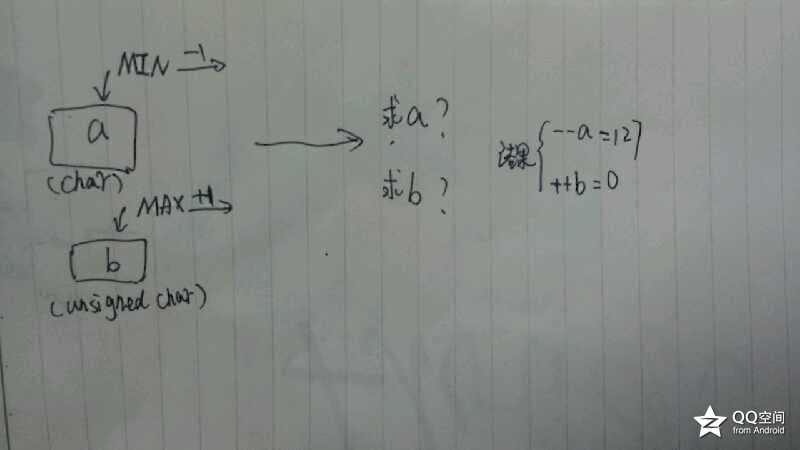 MIN -1
a
(char)
MAX +1
b
(unsigned char)
求a?
求b?
结果
--a=127
++b=0
QQ空间
from Android